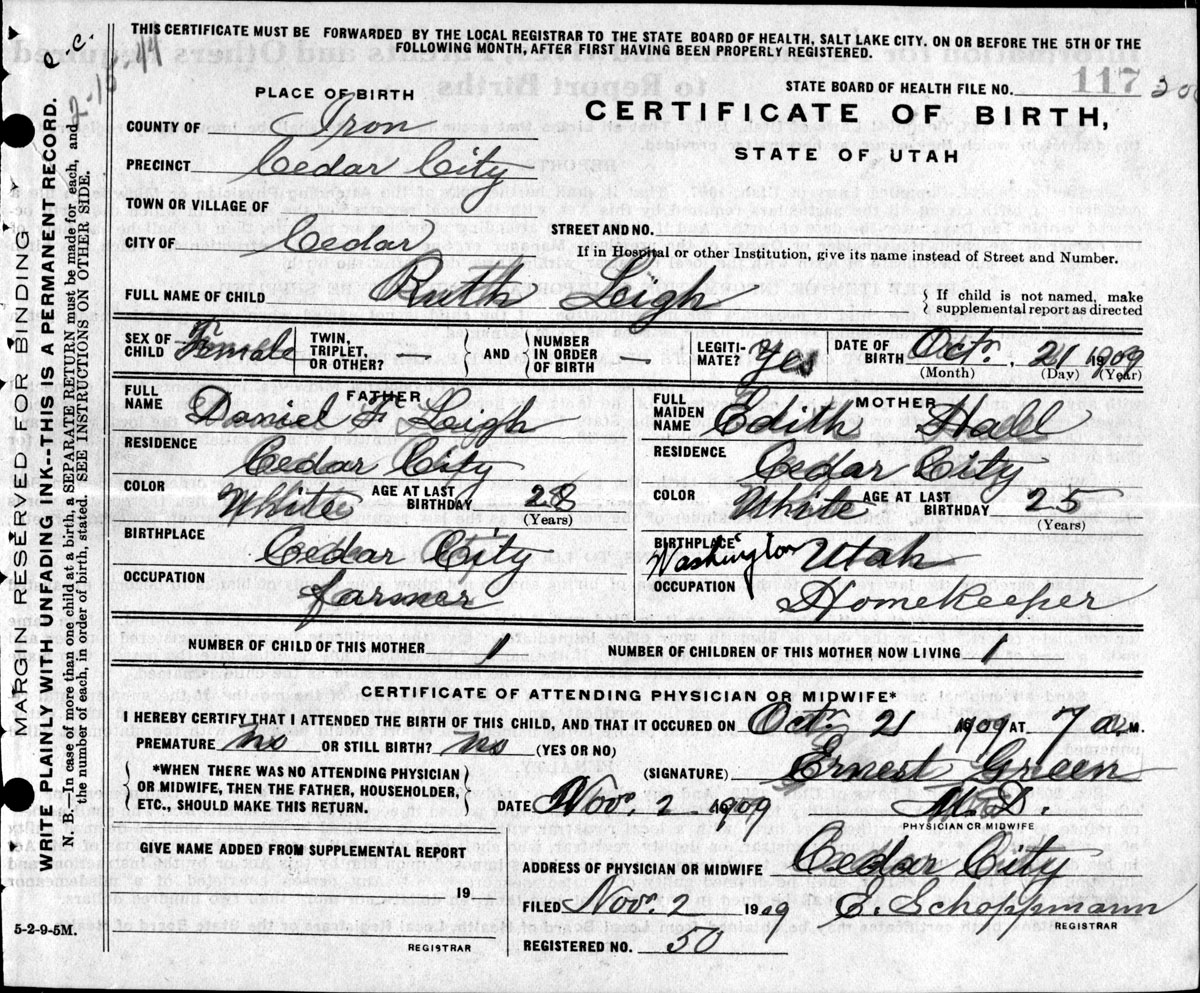 THIS CERTIFICATE MUST BE FORWARDED BY THE LOCAL REGISTRAR TO THE STATE BOARD OF HEALTH, SALT LAKE CITY, ON OR BEFORE THE 5TH OF THE
FOLLOWING MONTH, AFTER FIRST HAVING BEEN PROPERLY REGISTERED.
STATE BOARD OF HEALTH FILE NO. 117
PLACE OF BIRTH
CERTIFICATE OF BIRTH,
STATE OF UTAH
COUNTY OF Iron
PRECINCT Cedar City
TOWN OR VILLAGE OF
CITY OF Cedar STREET AND NO.
If in Hospital or other Institution, give its name instead of Street and Number.
FULL NAME OF CHILD Ruth Leigh { If child is not named, make
supplemental report as directed
SEX OF CHILD Female TWIN, TRIPLET, OR OTHER? — { AND } NUMBER IN ORDER OF BIRTH — LEGITI-MATE? Yes DATE OF BIRTH Octr. 21 1909
(Month) (Day) (Year)
FATHER
FULL NAME Daniel F Leigh
RESIDENCE Cedar City
COLOR White AGE AT LAST BIRTHDAY 28
(Years)
BIRTHPLACE Cedar City
OCCUPATION farmer
MOTHER
FULL MAIDEN NAME Edith Hall
RESIDENCE Cedar City
COLOR White AGE AT LAST BIRTHDAY 25
(Years)
BIRTHPLACE Washington Utah
OCCUPATION Homekeeper
NUMBER OF CHILD OF THIS MOTHER 1 NUMBER OF CHILDREN OF THIS MOTHER NOW LIVING 1
CERTIFICATE OF ATTENDING PHYSICIAN OR MIDWIFE*
I HEREBY CERTIFY THAT I ATTENDED THE BIRTH OF THIS CHILD, AND THAT IT OCCURED ON Octr 21 1909 AT 7 a. M.
PREMATURE no OR STILL BIRTH? no (YES OR NO)
{ *WHEN THERE WAS NO ATTENDING PHYSICIAN
OR MIDWIFE, THEN THE FATHER, HOUSEHOLDER,
ETC., SHOULD MAKE THIS RETURN. }
(SIGNATURE) Ernest Green
DATE Novr. 2 1909 M.D.
PHYSICIAN OR MIDWIFE
GIVE NAME ADDED FROM SUPPLEMENTAL REPORT
19
REGISTRAR
ADDRESS OF PHYSICIAN OR MIDWIFE Cedar City
FILED Novr. 2 1909 E. Schoppmann
REGISTRAR
REGISTERED NO. 50
5-2-9-5M.
MARGIN RESERVED FOR BINDING
WRITE PLAINLY WITH UNFADING INK--THIS IS A PERMANENT RECORD.
N. B.—In case of more than one child at a birth, a SEPARATE RETURN must be made for each, and
the number of each, in order of birth, stated. SEE INSTRUCTIONS ON OTHER SIDE.